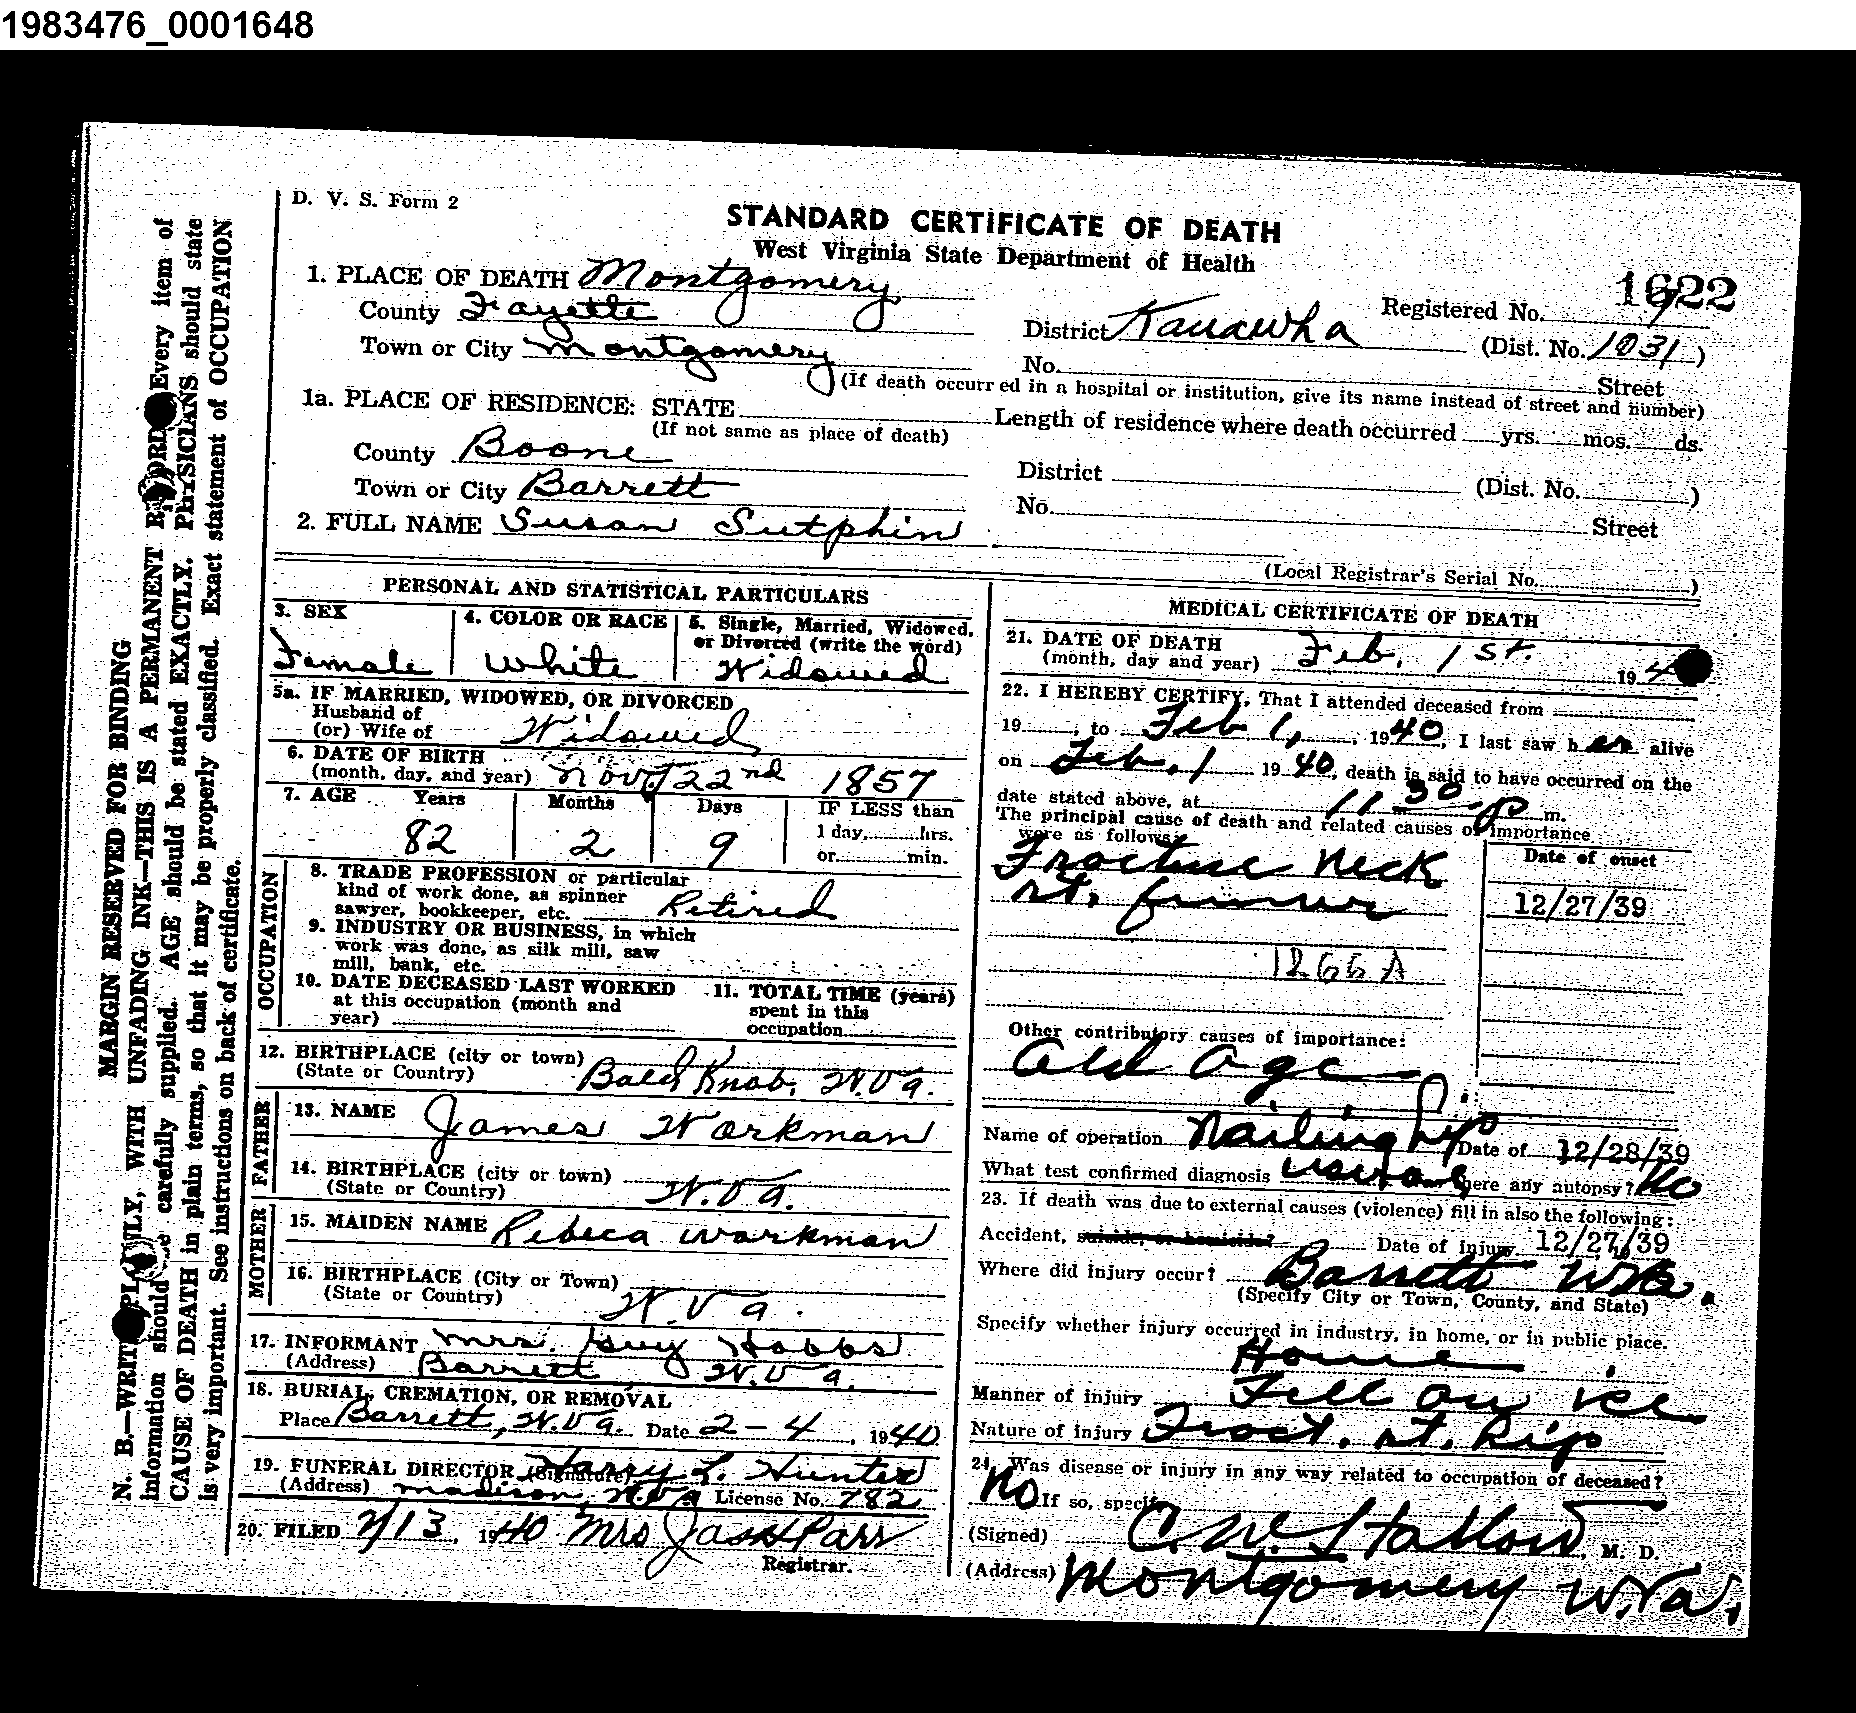 1983476_0001648
D. V. S. Form 2
STANDARD CERTIFICATE OF DEATH
West Virginia State Department of Health
1622
1. PLACE OF DEATH Montgomery
County Fayette
Town or City Montgomery
Registered No.
District Kanawha (Dist. No. 1031)
No. Street
(If death occurred in a hospital or institution, give its name instead of street and number)
1a. PLACE OF RESIDENCE: STATE
(If not same as place of death)
Length of residence where death occurred yrs. mos. ds.
County Boone
District (Dist. No. )
Town or City Barrett
No. Street
2. FULL NAME Susan Sutphin
(Local Registrar's Serial No. )
PERSONAL AND STATISTICAL PARTICULARS
3. SEX
Female
4. COLOR OR RACE
White
5. Single, Married, Widowed,
or Divorced (write the word)
Widowed
5a. IF MARRIED, WIDOWED, OR DIVORCED
Husband of
(or) Wife of Widowed
6. DATE OF BIRTH
(month, day, and year) Nov. 22nd 1857
7. AGE Years Months Days IF LESS than
82 2 9 1 day, hrs.
or min.
OCCUPATION
8. TRADE PROFESSION or particular
kind of work done, as spinner
sawyer, bookkeeper, etc. Retired
9. INDUSTRY OR BUSINESS, in which
work was done, as silk mill, saw
mill, bank, etc.
10. DATE DECEASED LAST WORKED
at this occupation (month and
year)
11. TOTAL TIME (years)
spent in this
occupation
12. BIRTHPLACE (city or town)
(State or Country) Bald Knob, W.Va.
FATHER
13. NAME James Workman
14. BIRTHPLACE (city or town)
(State or Country) W.Va.
MOTHER
15. MAIDEN NAME Rebeca Workman
16. BIRTHPLACE (City or Town)
(State or Country) W.Va.
17. INFORMANT Mrs. Guy Hobbs
(Address) Barrett W.Va.
18. BURIAL, CREMATION, OR REMOVAL
Place Barrett, W.Va. Date 2-4, 1940
19. FUNERAL DIRECTOR (Signature) Harry L. Hunter
(Address) Madison, W.Va License No. 782
20. FILED 2/13, 1940 Mrs Jas H Parr
Registrar.
MEDICAL CERTIFICATE OF DEATH
21. DATE OF DEATH
(month, day and year) Feb. 1st. 194
22. I HEREBY CERTIFY, That I attended deceased from
19 , to Feb 1, 1940, I last saw her alive
on Feb. 1 1940, death is said to have occurred on the
date stated above, at 11 30 p m.
The principal cause of death and related causes of importance
were as follows:
Fracture neck
rt. femur
Date of onset
12/27/39
Other contributory causes of importance:
Old Age
Name of operation Nailing hip Date of 12/28/39
What test confirmed diagnosis Was there any autopsy? No
23. If death was due to external causes (violence) fill in also the following:
Accident, suicide, or homicide? Date of injury 12/27/39
Where did injury occur? Barrett W.Va.
(Specify City or Town, County, and State)
Specify whether injury occurred in industry, in home, or in public place.
Home
Manner of injury Fell on ice
Nature of injury Fract. rt. hip
24. Was disease or injury in any way related to occupation of deceased?
No If so, specify
(Signed) M. D.
(Address) Montgomery W.Va.
MARGIN RESERVED FOR BINDING
N. B.—WRITE PLAINLY, WITH UNFADING INK—THIS IS A PERMANENT RECORD Every item of
information should be carefully supplied. AGE should be stated EXACTLY. PHYSICIANS should state
CAUSE OF DEATH in plain terms, so that it may be properly classified. Exact statement of OCCUPATION
is very important. See instructions on back of certificate.